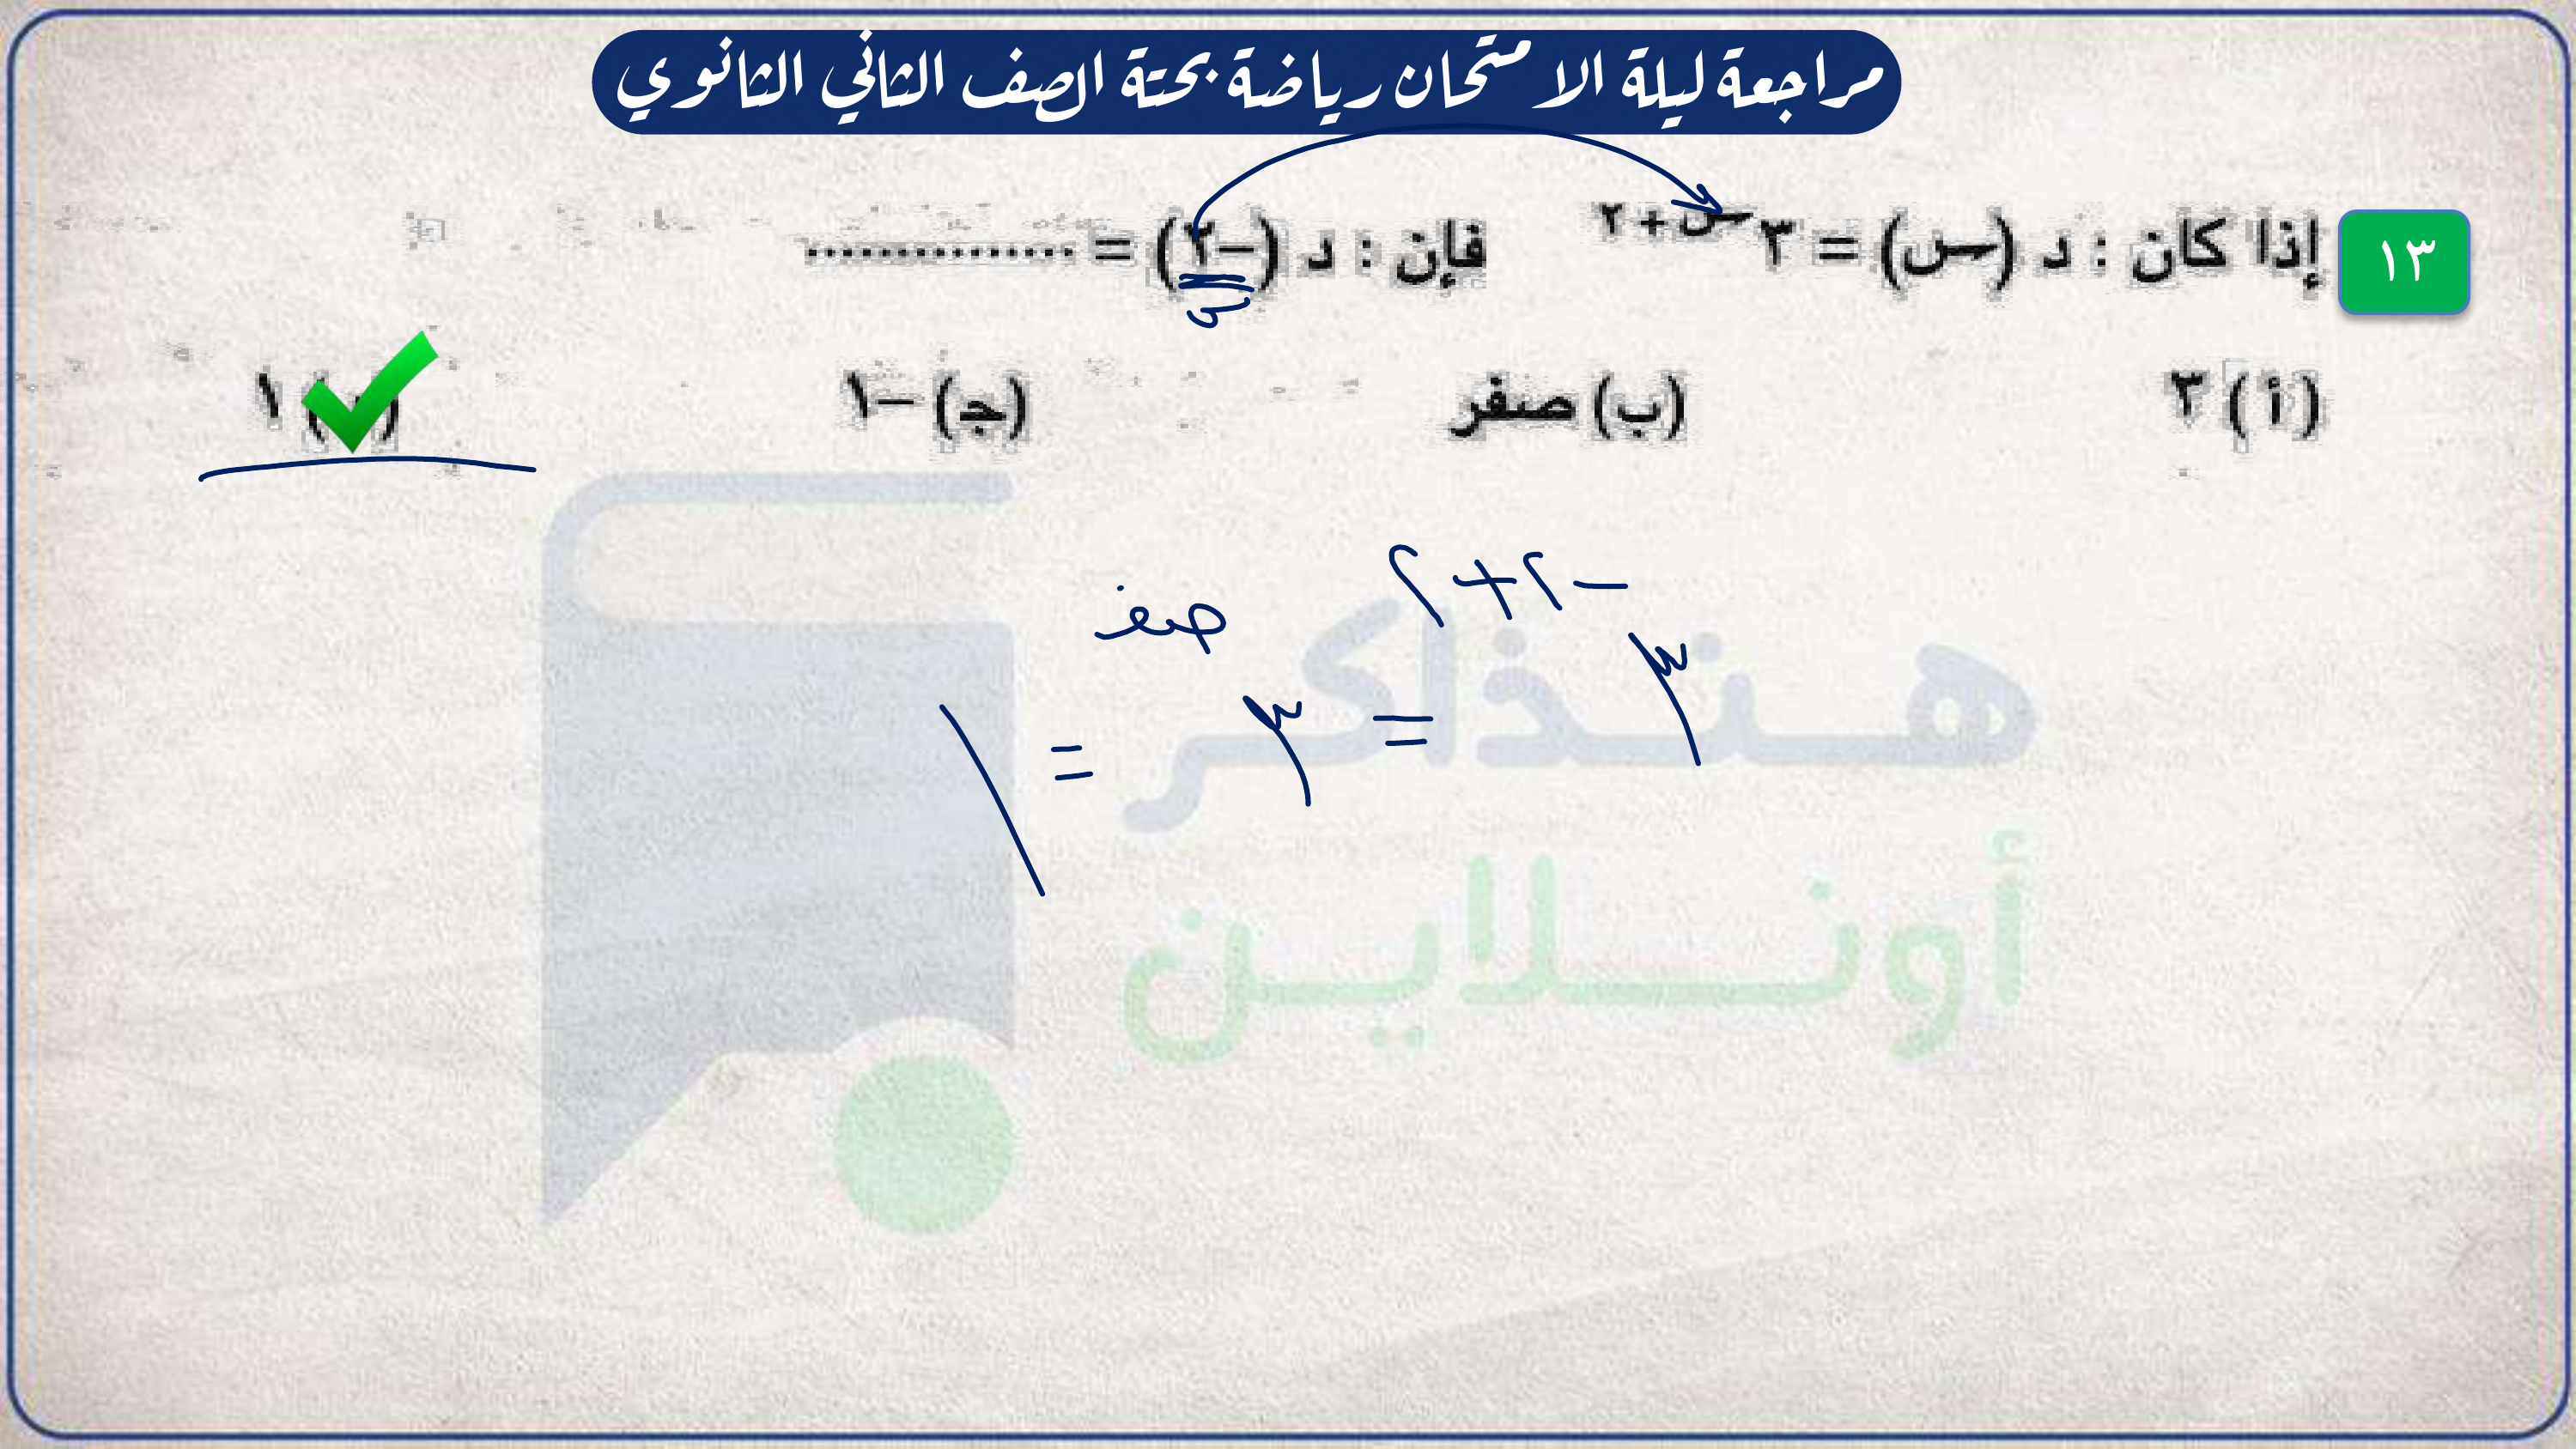 مراجعة ليلة الامتحان رياضة بحتة الصف الثاني الثانوي
١٣ إذا كان : د (س) = ٣^(س+٢) فإن : د (-٢) = ..............
س
(أ) ٣ (ب) صفر (ج) -١ ١
٣^(-٢+٢) = ٣^صفر = ١
هنذاكر
أونلاين